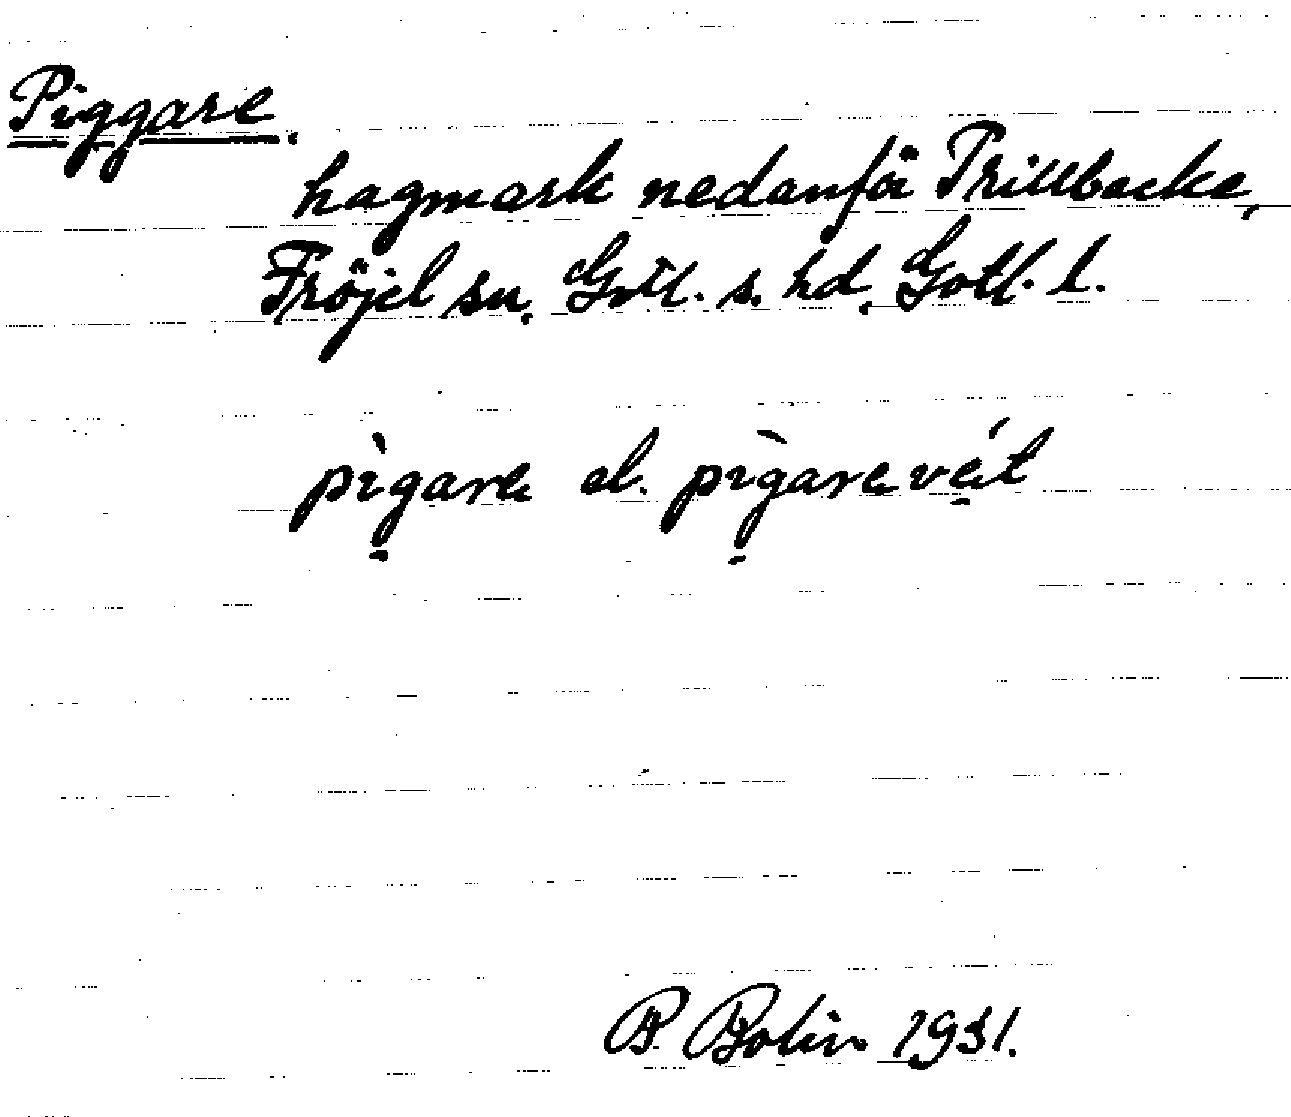 Piggare.
hagmark nedanför Prillbacke,
Fröjel sn. Gotl. s. hd. Gotl. l.
pìgarε el. pìgarεvέit
P. Bolin 1931.